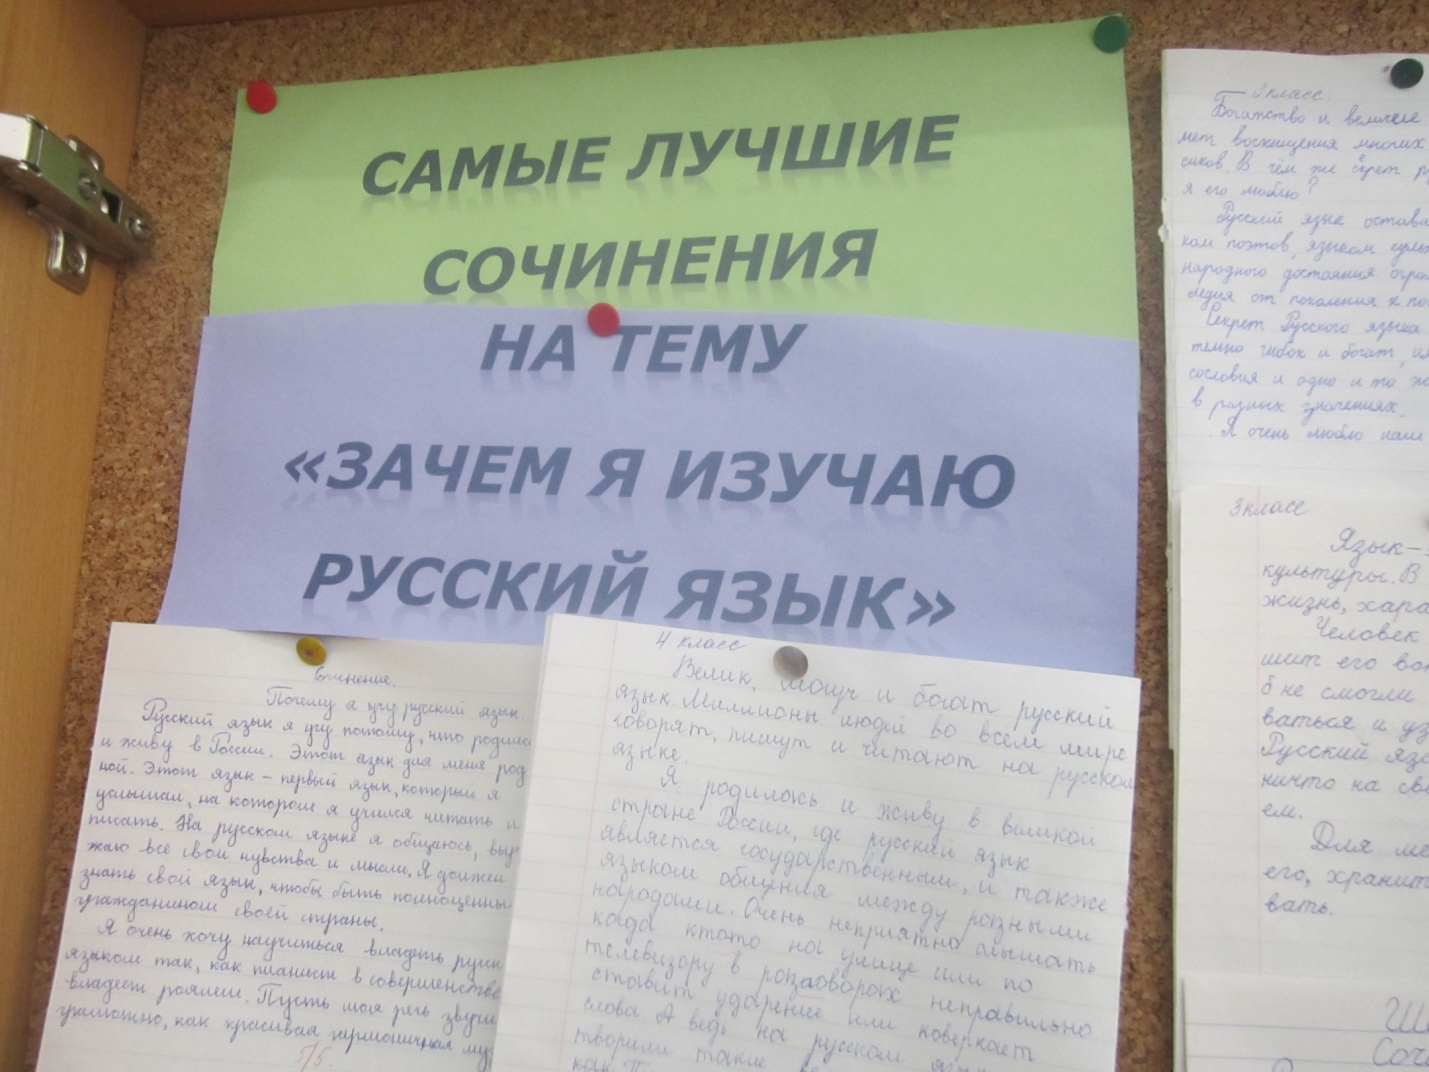 САМЫЕ ЛУЧШИЕ
СОЧИНЕНИЯ
НА ТЕМУ
«ЗАЧЕМ Я ИЗУЧАЮ
РУССКИЙ ЯЗЫК»
Сочинение.
Почему я учу русский язык.
Русский язык я учу потому, что родилс
и живу в России. Этот язык для меня род
ной. Этот язык – первый язык, который я
услышал, на котором я учился читать и
писать. На русском языке я общаюсь, выр
жаю все свои чувства и мысли. Я должен
знать свой язык, чтобы быть полноценны
гражданином своей страны.
Я очень хочу научиться владеть русск
языком так, как пианист в совершенстве
владеет роялем. Пусть моя речь звучи
грамотно, как красивая гармоничная му
5/5.
4 класс
Велик, могуч и богат русский
язык. Миллионы людей во всем мире
говорят, пишут и читают на русском
языке.
Я родилась и живу в великой
стране России, где русский язык
является государственным, и также
языком общения между разными
народами. Очень неприятно слышать
когда ктото на улице или по
телевизору в разговорах неправильно
ставит ударение или коверкает
слова. А ведь на русском
творили такие
как П
класс.
Богатство и величие
мет восхищения многих
сиков. В чём же серет
я его люблю?
Русский язык остава
ком поэтов, языком
народного достояния огро
ледия от поколения к по
Секрет Русского языка
тельно гибок и богат,
сословия и одно и то ж
в разных значениях.
Я очень люблю наш
3 класс
Язык –
культуры. В
жизнь, хара
Человек
шит его во
б не смогли
ваться и уз
Русский яз
ничто на св
ем.
Для ме
его, хранит
вать.
Ш
Соч